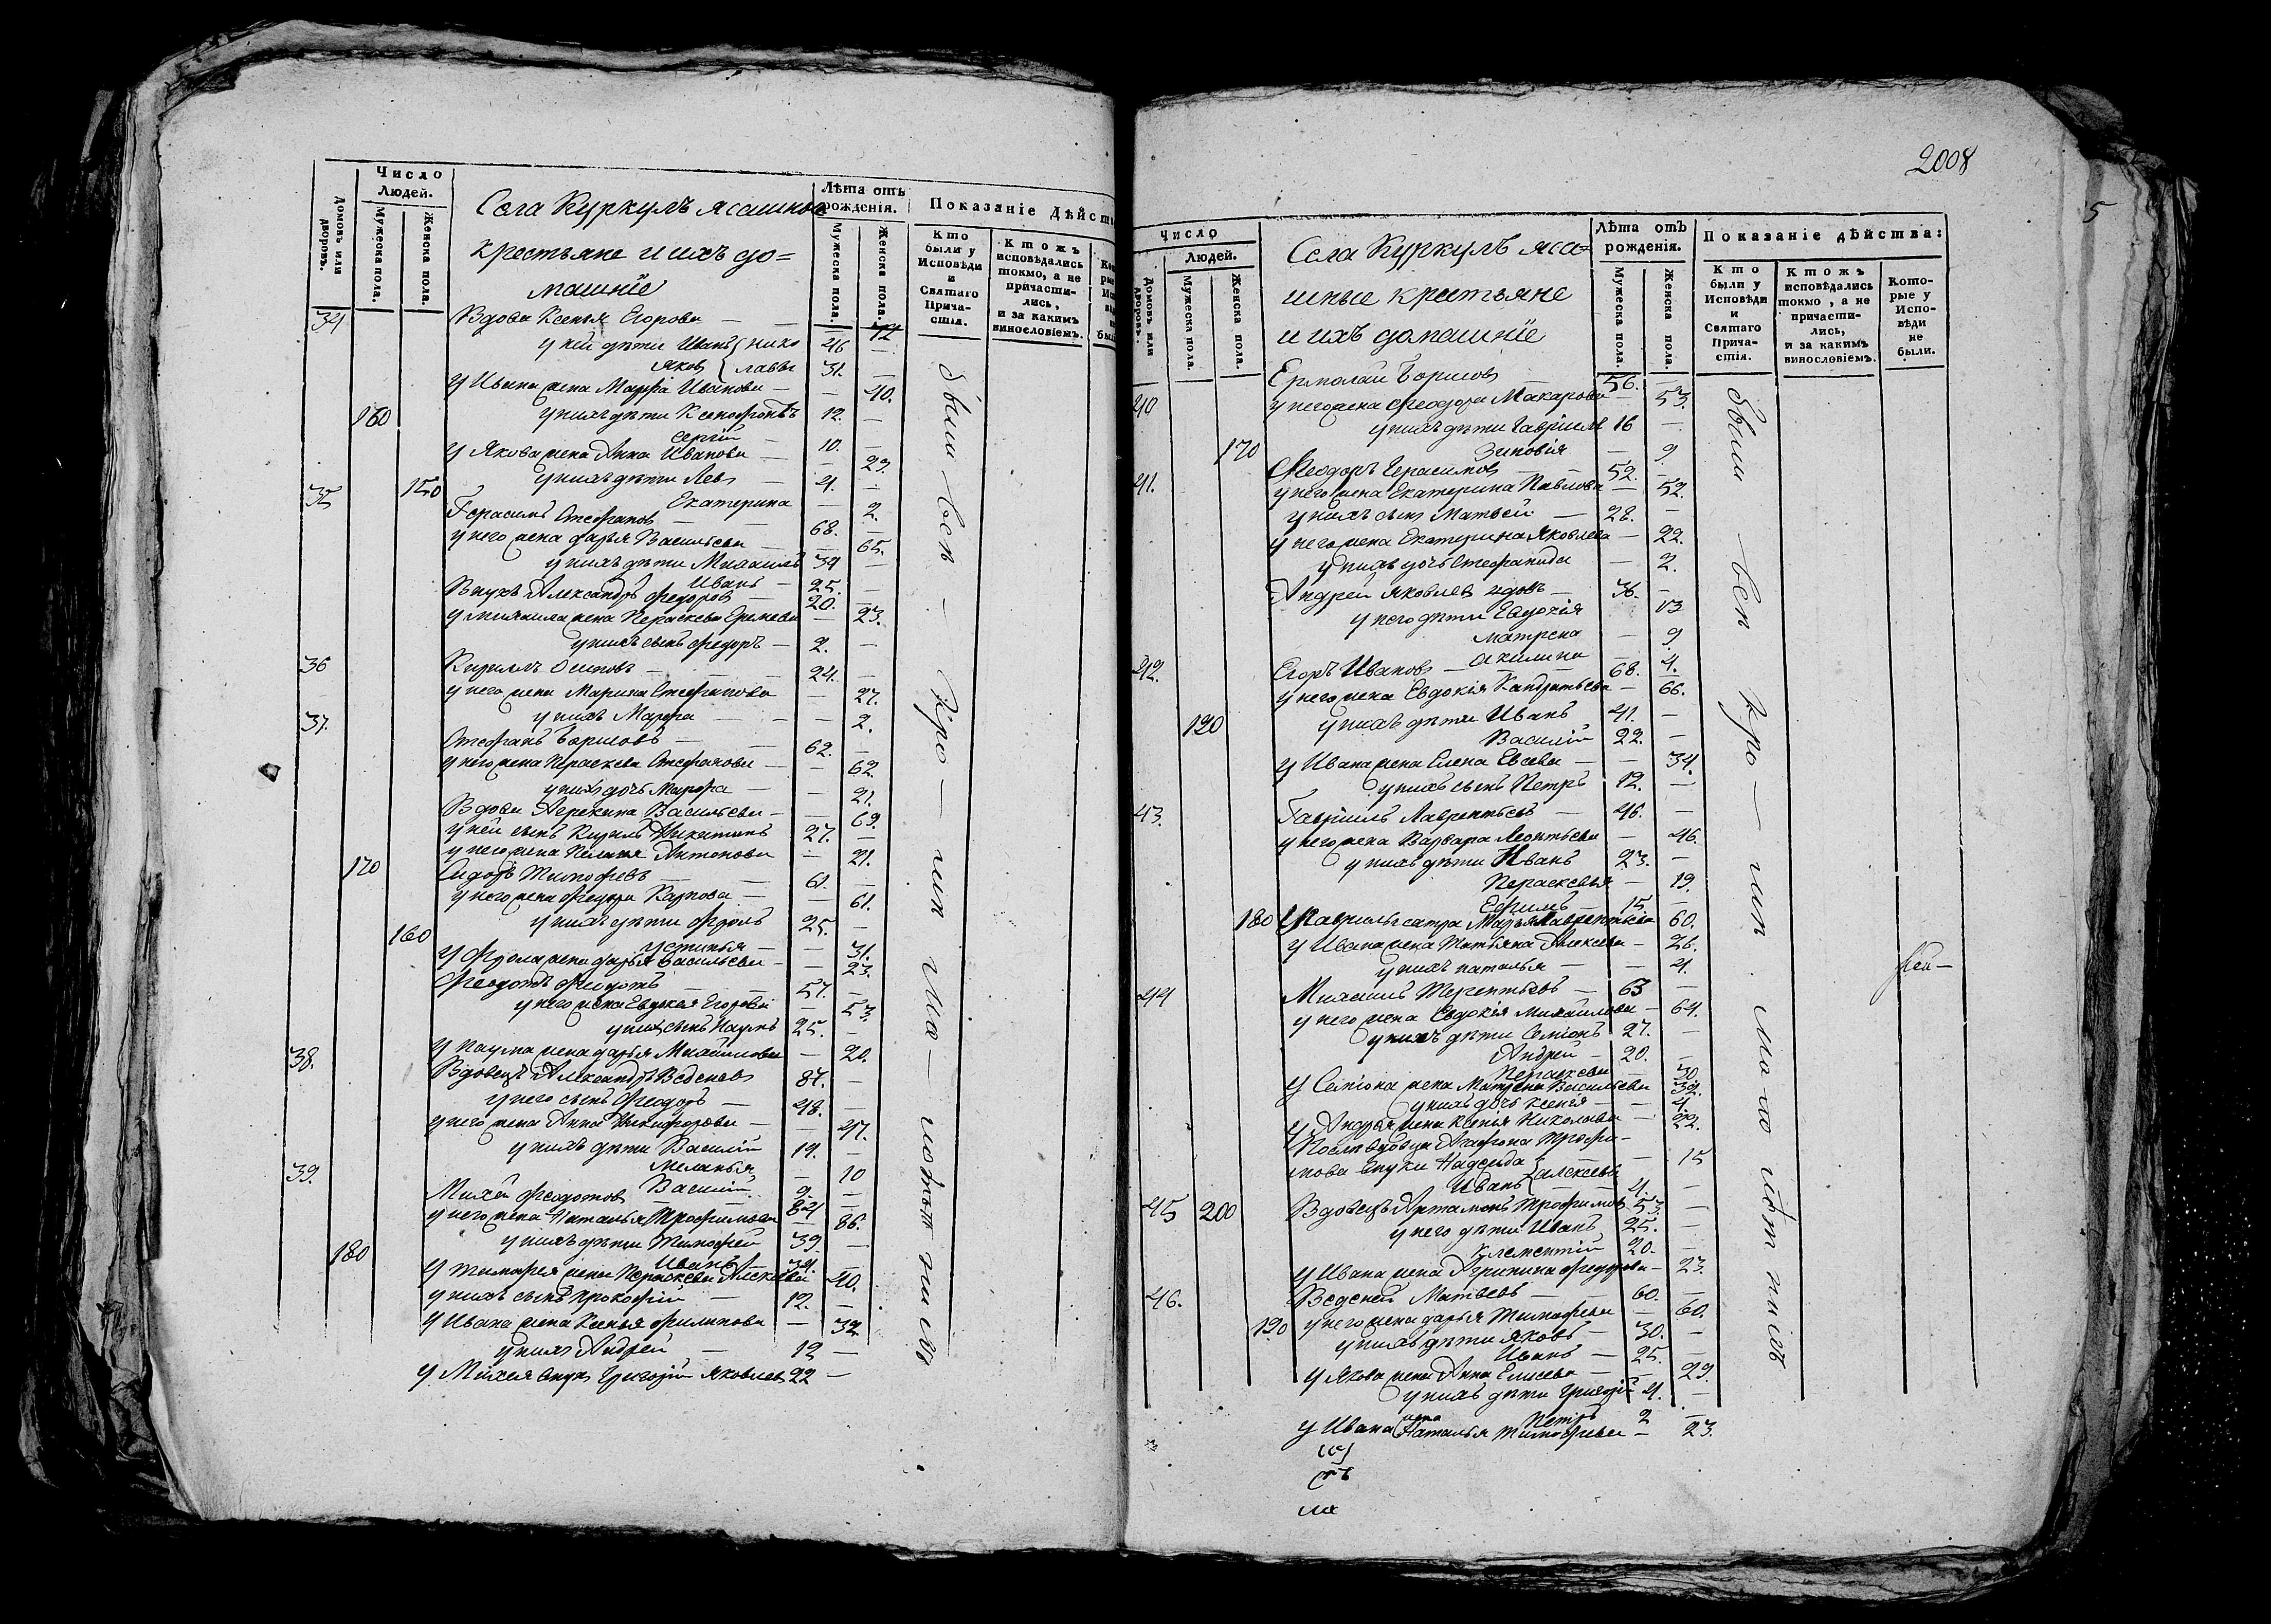 Число
Людей.
Домовъ или дворовъ.
Мужеска пола.
Женска пола.
Села Куркулъ ясашные
крестьяне и ихъ до=
машніе
Лѣта отъ
рожденія.
Мужеска пола.
Женска пола.
Показаніе Дѣйст
Кто были у Исповѣди и Святаго Причастія.
Ктожъ исповѣдались токмо, а не причастились, и за какимъ винословіемъ.
34 Вдова Ксенья Егорова — 72
у ней дѣти Иванъ { Нико 46 —
Яковъ { лавы 31. —
у Ивана жена Марфа Иванова — — 40.
160 у нихъ дѣти Ксенофонтъ 12. —
Сергій — 10. —
у Якова жена Анна Иванова — — 29.
у нихъ дѣти Левъ — 4. —
150 Екатерина — 2.
35 Герасимъ Стефановъ — 68. —
у него жена дарья Васильева — — 65.
у нихъ дѣти Михаилъ 39 —
Иванъ — 25. —
Внукъ Александръ Федоровъ — 20. —
у Михаила жена Пераскева Еремеева — 23.
у нихъ сынъ Федоръ — 2. —
36 Кирилъ Осиповъ — 24. —
у него жена Марина Стефанова — 27.
у нихъ Марфа — — 2.
37. Стефанъ Борисовъ — 62. —
у него жена Пераскева Стефанова — — 62.
у нихъ дочь Марфа — — 21.
Вдова Агрепена Васильева — — 69.
у ней сынъ Кирилъ Никитинъ 27. —
у него жена Пелагея Антонова — 21.
170 Сидоръ Тимофеевъ — 61. —
у него жена Федора Карпова — — 61.
у нихъ дѣти Фролъ 25. —
160 Устинья — — 31.
у Фрола жена дарья Васильева — — 23.
57. —
у него жена Евдокея Егорова — 53.
у нихъ сынъ Наумъ 25. —
у Наума жена дарья Михайлова — 20.
38. Вдовецъ Александръ Веденеевъ 87. —
у него сынъ Феодоръ — 48. —
у него жена Анна Никифорова — — 47.
у нихъ дѣти Василій 19. —
Меланья — 10
Василій. 9. —
39. Михей Федотовъ 84 —
у него жена Наталья Трофимова — 86.
у нихъ дѣти Тимофей 39. —
180 Иванъ — 34. —
у Тимофея жена Пераскева Алексеева 40.
у нихъ сынъ Прокофій — 12. —
у Ивана жена Ксенья Филипова — 32
у нихъ Андрей — 12 —
у Михея внукъ Григорій Яковлевъ 22 —
были всѣ
2008
5
Число
Людей.
Домовъ или дворовъ.
Мужеска пола.
Женска пола.
Села Куркулъ яса=
шные крестьяне
и ихъ домашніе
Лѣта отъ
рожденія.
Мужеска пола.
Женска пола.
Показаніе дѣйства:
Кто были у Исповѣди и Святаго Причастія.
Ктожъ исповѣдались токмо, а не причастились, и за какимъ винословіемъ.
Которые у Исповѣди не были.
40 Ермолай Борисовъ — 56. —
у него жена Феодора Макарова — 53.
у нихъ дѣти Гавріилъ 16 —
170 Зиновія — 9.
41. Феодоръ Герасимовъ — 52. —
у него жена Екатерина Павлова — 52.
у нихъ сынъ Матвей — 28. —
у него жена Екатерина Яковлева — 22.
у нихъ дочь Стефанида — 2.
Андрей Яковлевъ вдовъ — 36. —
у него дѣти Евдокія 13
Матрена — 9.
Акилина — 4.
42. Егоръ Ивановъ — 68. —
у него жена Евдокія Кандратьева — 66.
190 у нихъ дѣти Иванъ 41. —
Василій 22. —
у Ивана жена Елена Евсева — — 34.
у нихъ сынъ Петръ 12. —
43. Гавріилъ Лаврентьевъ — 46. —
у него жена Варвара Леонтьева — 46.
у нихъ дѣти Иванъ 23. —
Пераскевья — 19.
Ефимъ — 15. —
180 у Гавріила сестра Марья Лаврентьева 60.
у Ивана жена Татьяна Алексеева — 26.
у нихъ наталья — — 4.
44 Михаилъ Терентьевъ — 63 —
у него жена Евдокія Михайлова — 64.
у нихъ дѣти Семіонъ 27. —
Андрей — 20. —
Пераскева — 30
у Семіона жена Матрена Васильева 32.
у нихъ дочь Ксенія — — 4.
у Андрея жена Ксенія Николаева — 22.
После вдовца Агафона Трофи-
мова внуки Надежда { Алексеевы — 15
Иванъ 4. —
45 200 Вдовецъ Артамонъ Трофимовъ 53. —
у него дѣти Иванъ 25. —
Клементій 20. —
у Ивана жена Агрипина Федорова — 23.
46. Веденей Матвеевъ — 60. —
190 у него жена дарья Тимофеева — 60.
у нихъ дѣти Яковъ — 30. —
Иванъ — 25. —
у Якова жена Анна Елисеева — — 29.
у нихъ дѣти Григорій 4. —
Петръ 2 —
у Ивана жена Наталья Тимофеева — 23.
были всѣ